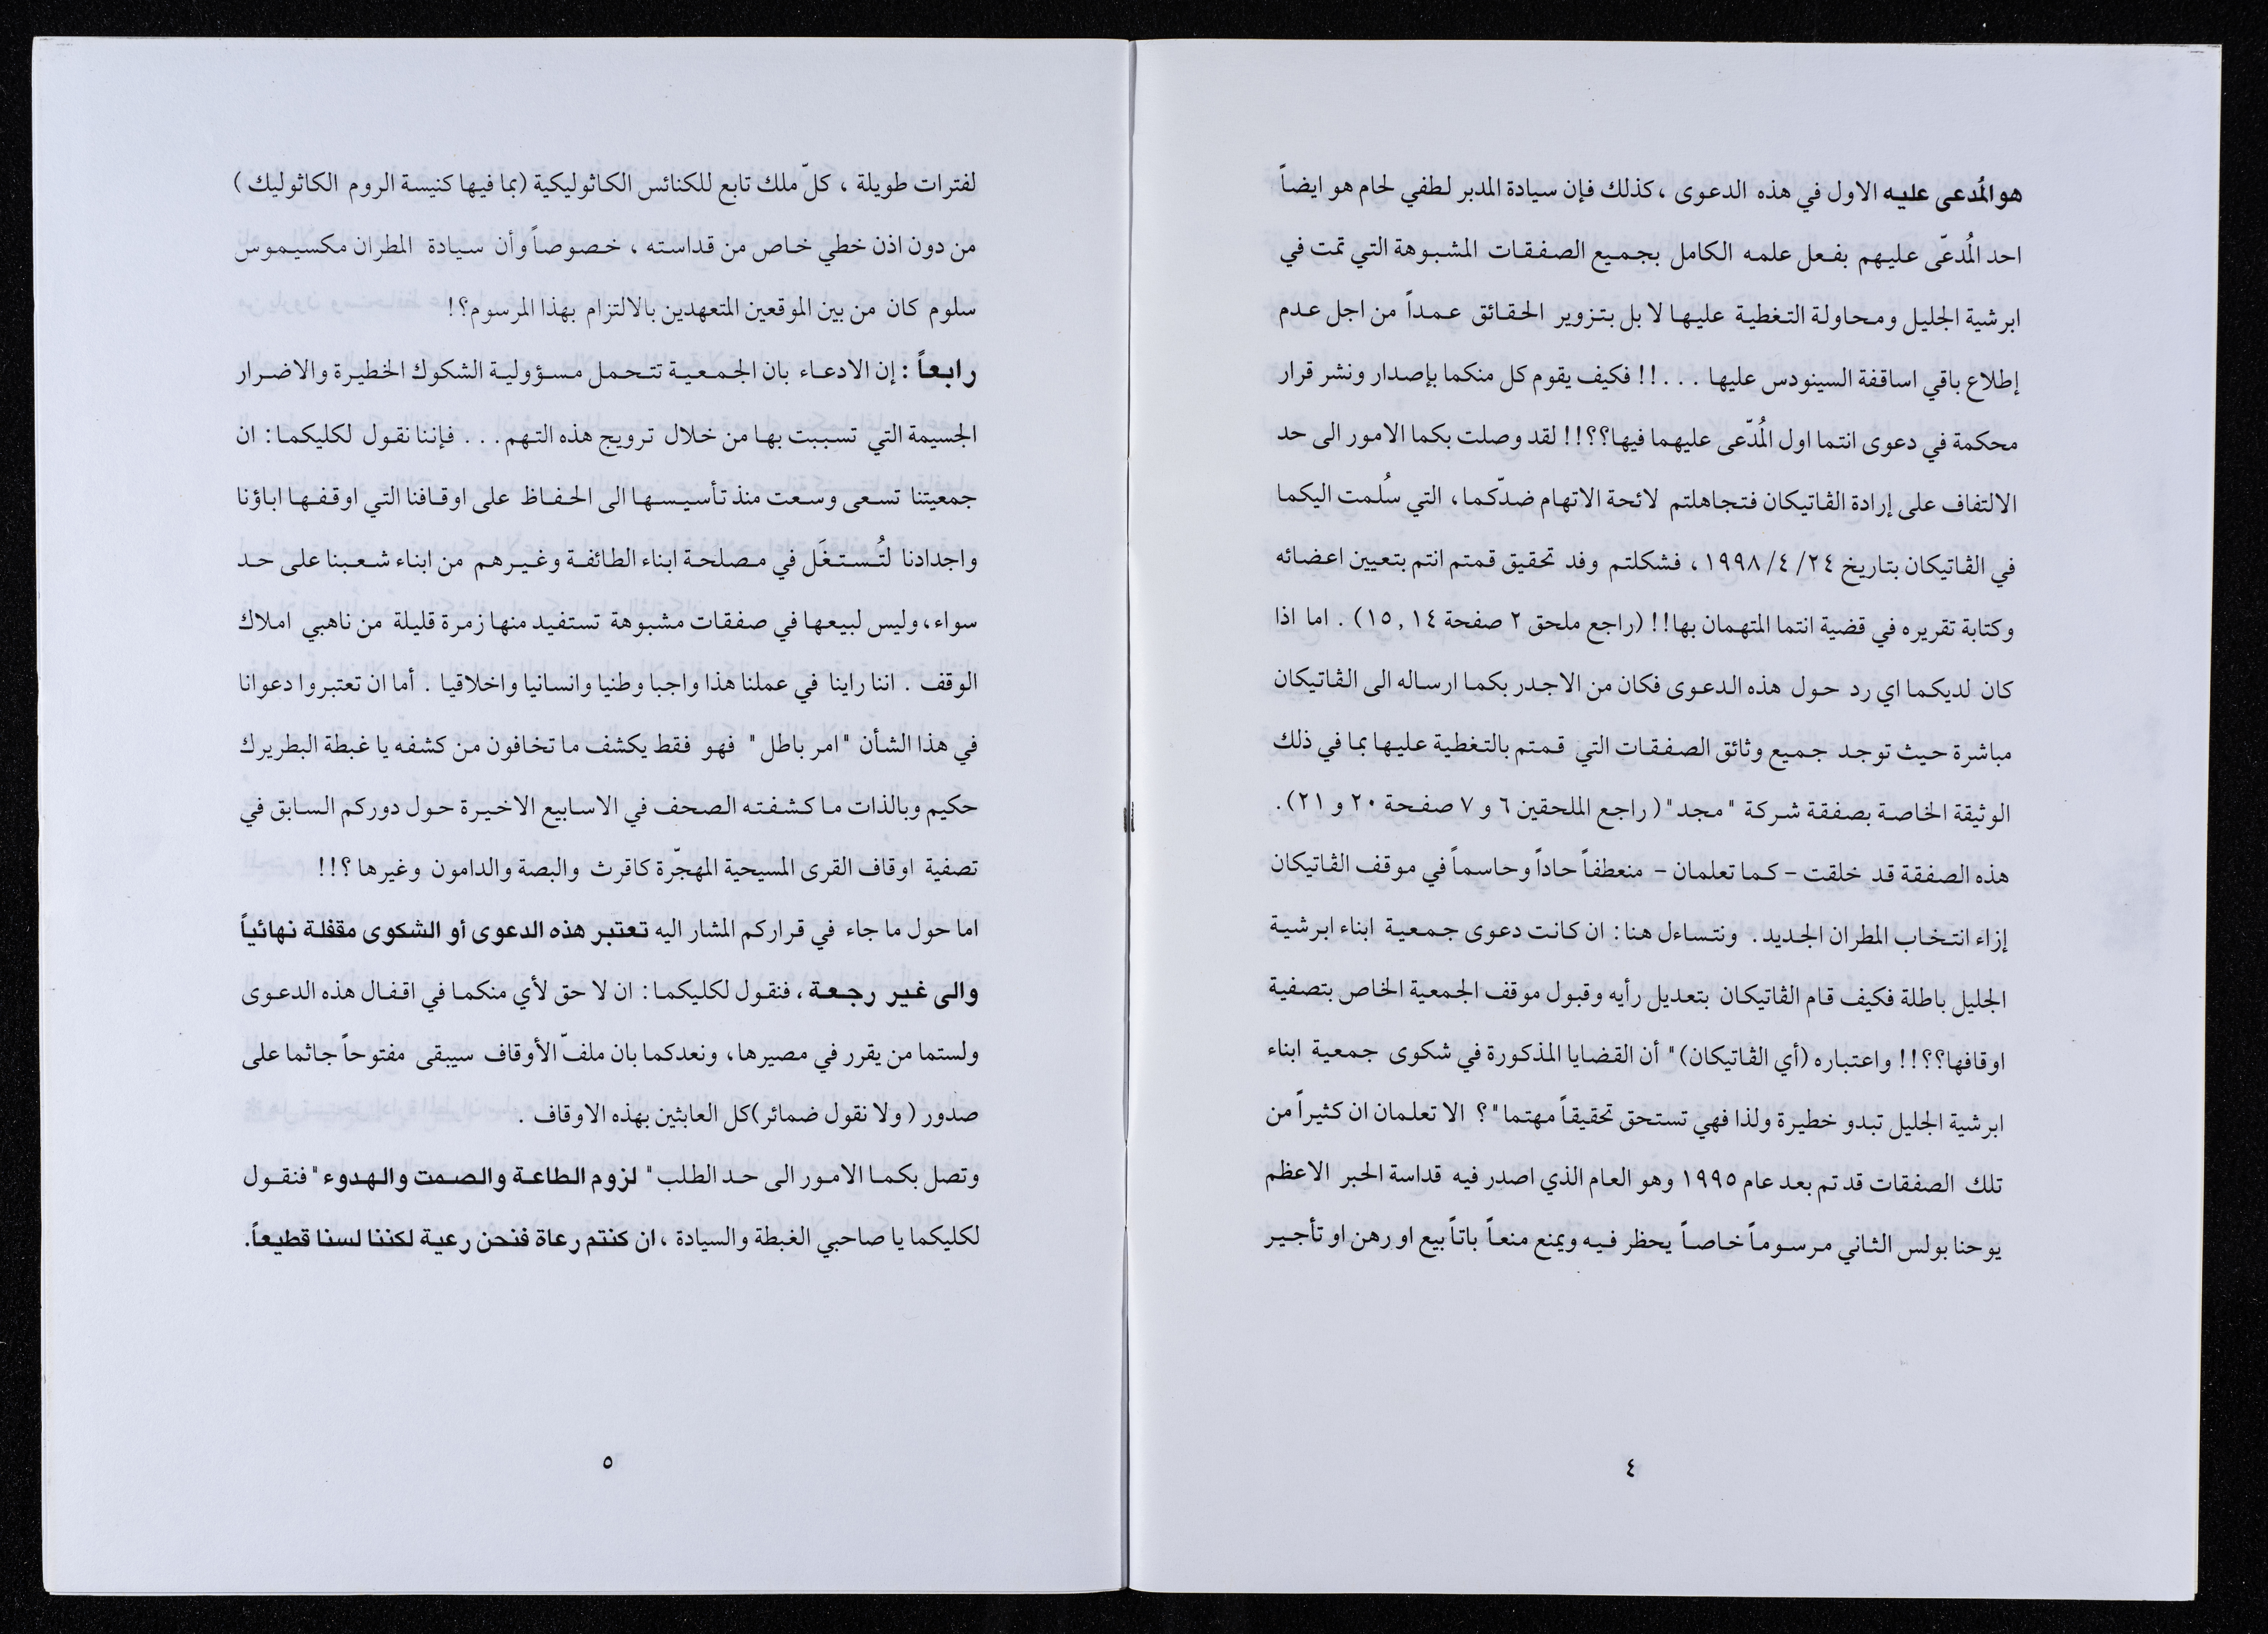 هو المُدعى عليه الاول في هذه الدعوى ، كذلك فإن سيادة المدبر لطفي لحام هو ايضاً
احد المُدعّى عليهم بفعل علمه الكامل بجميع الصفقات المشبوهة التي تمت في
ابرشية الجليل ومحاولة التغطية عليها لا بل بتزوير الحقائق عمداً من اجل عدم
إطلاع باقي اساقفة السينودس عليها . . . !! فكيف يقوم كل منكما بإصدار ونشر قرار
محكمة في دعوى انتما اول المُدّعى عليهما فيها؟؟!! لقد وصلت بكما الامور الى حد
الالتفاف على إرادة الڤاتيكان فتجاهلتم لائحة الاتهام ضدّكما ، التي سُلمت اليكما
في الڤاتيكان بتاريخ ٢٤/ ٤/ ١٩٩٨ ، فشكلتم وفد تحقيق قمتم انتم بتعيين اعضائه
وكتابة تقريره في قضية انتما المتهمان بها!! (راجع ملحق ٢ صفحة ١٤ , ١٥) . اما اذا
كان لديكما اي رد حول هذه الدعوى فكان من الاجدر بكما ارساله الى الڤاتيكان
مباشرة حيث توجد جميع وثائق الصفقات التي قمتم بالتغطية عليها بما في ذلك
الوثيقة الخاصة بصفقة شركة " مجد" ( راجع الملحقين ٦ و ٧ صفحة ٢٠ و ٢١) .
هذه الصفقة قد خلقت - كما تعلمان - منعطفاً حاداً وحاسماً في موقف الڤاتيكان
إزاء انتخاب المطران الجديد . ونتساءل هنا : ان كانت دعوى جمعية ابناء ابرشية
الجليل باطلة فكيف قام الڤاتيكان بتعديل رأيه وقبول موقف الجمعية الخاص بتصفية
اوقافها؟؟!! واعتباره (أي الڤاتيكان) " أن القضايا المذكورة في شكوى جمعية ابناء
ابرشية الجليل تبدو خطيرة ولذا فهي تستحق تحقيقاً مهتما" ؟ الا تعلمان ان كثيراً من
تلك الصفقات قد تم بعد عام ١٩٩٥ وهو العام الذي اصدر فيه قداسة الحبر الاعظم
يوحنا بولس الثاني مرسوماً خاصاً يحظر فيه ويمنع منعاً باتاً بيع او رهن او تأجير
٤
لفترات طويلة ، كلّ ملك تابع للكنائس الكاثوليكية (بما فيها كنيسة الروم الكاثوليك )
من دون اذن خطي خاص من قداسته ، خصوصاً وأن سيادة المطران مكسيموس
سلوم كان من بين الموقعين المتعهدين بالالتزام بهذا المرسوم؟!
رابعاً : إن الادعاء بان الجمعية تتحمل مسؤولية الشكوك الخطيرة والاضرار
الجسيمة التي تسببت بها من خلال ترويج هذه التهم . . . فإننا نقول لكليكما : ان
جمعيتنا تسعى وسعت منذ تأسيسها الى الحفاظ على اوقافنا التي اوقفها اباؤنا
واجدادنا لتُستغَل في مصلحة ابناء الطائفة وغيرهم من ابناء شعبنا على حد
سواء ، وليس لبيعها في صفقات مشبوهة تستفيد منها زمرة قليلة من ناهبي املاك
الوقف . اننا راينا في عملنا هذا واجبا وطنيا وانسانيا واخلاقيا . أما ان تعتبروا دعوانا
في هذا الشأن " امر باطل " فهو فقط يكشف ما تخافون من كشفه يا غبطة البطريرك
حكيم وبالذات ما كشفته الصحف في الاسابيع الاخيرة حول دوركم السابق في
تصفية اوقاف القرى المسيحية المهجّرة كاقرث والبصة والدامون وغيرها ؟!!
اما حول ما جاء في قراركم المشار اليه تعتبر هذه الدعوى أو الشكوى مقفلة نهائياً
والى غير رجعة ، فنقول لكليكما : ان لا حق لأي منكما في اقفال هذه الدعوى
ولستما من يقرر في مصيرها ، ونعدكما بان ملفّ الأوقاف سيبقى مفتوحاً جاثما على
صدور ( ولا نقول ضمائر)كل العابثين بهذه الاوقاف .
وتصل بكما الامور الى حد الطلب " لزوم الطاعة والصمت والهدوء " فنقول
لكليكما يا صاحبي الغبطة والسيادة ، ان كنتم رعاة فنحن رعية لكننا لسنا قطيعاً.
٥